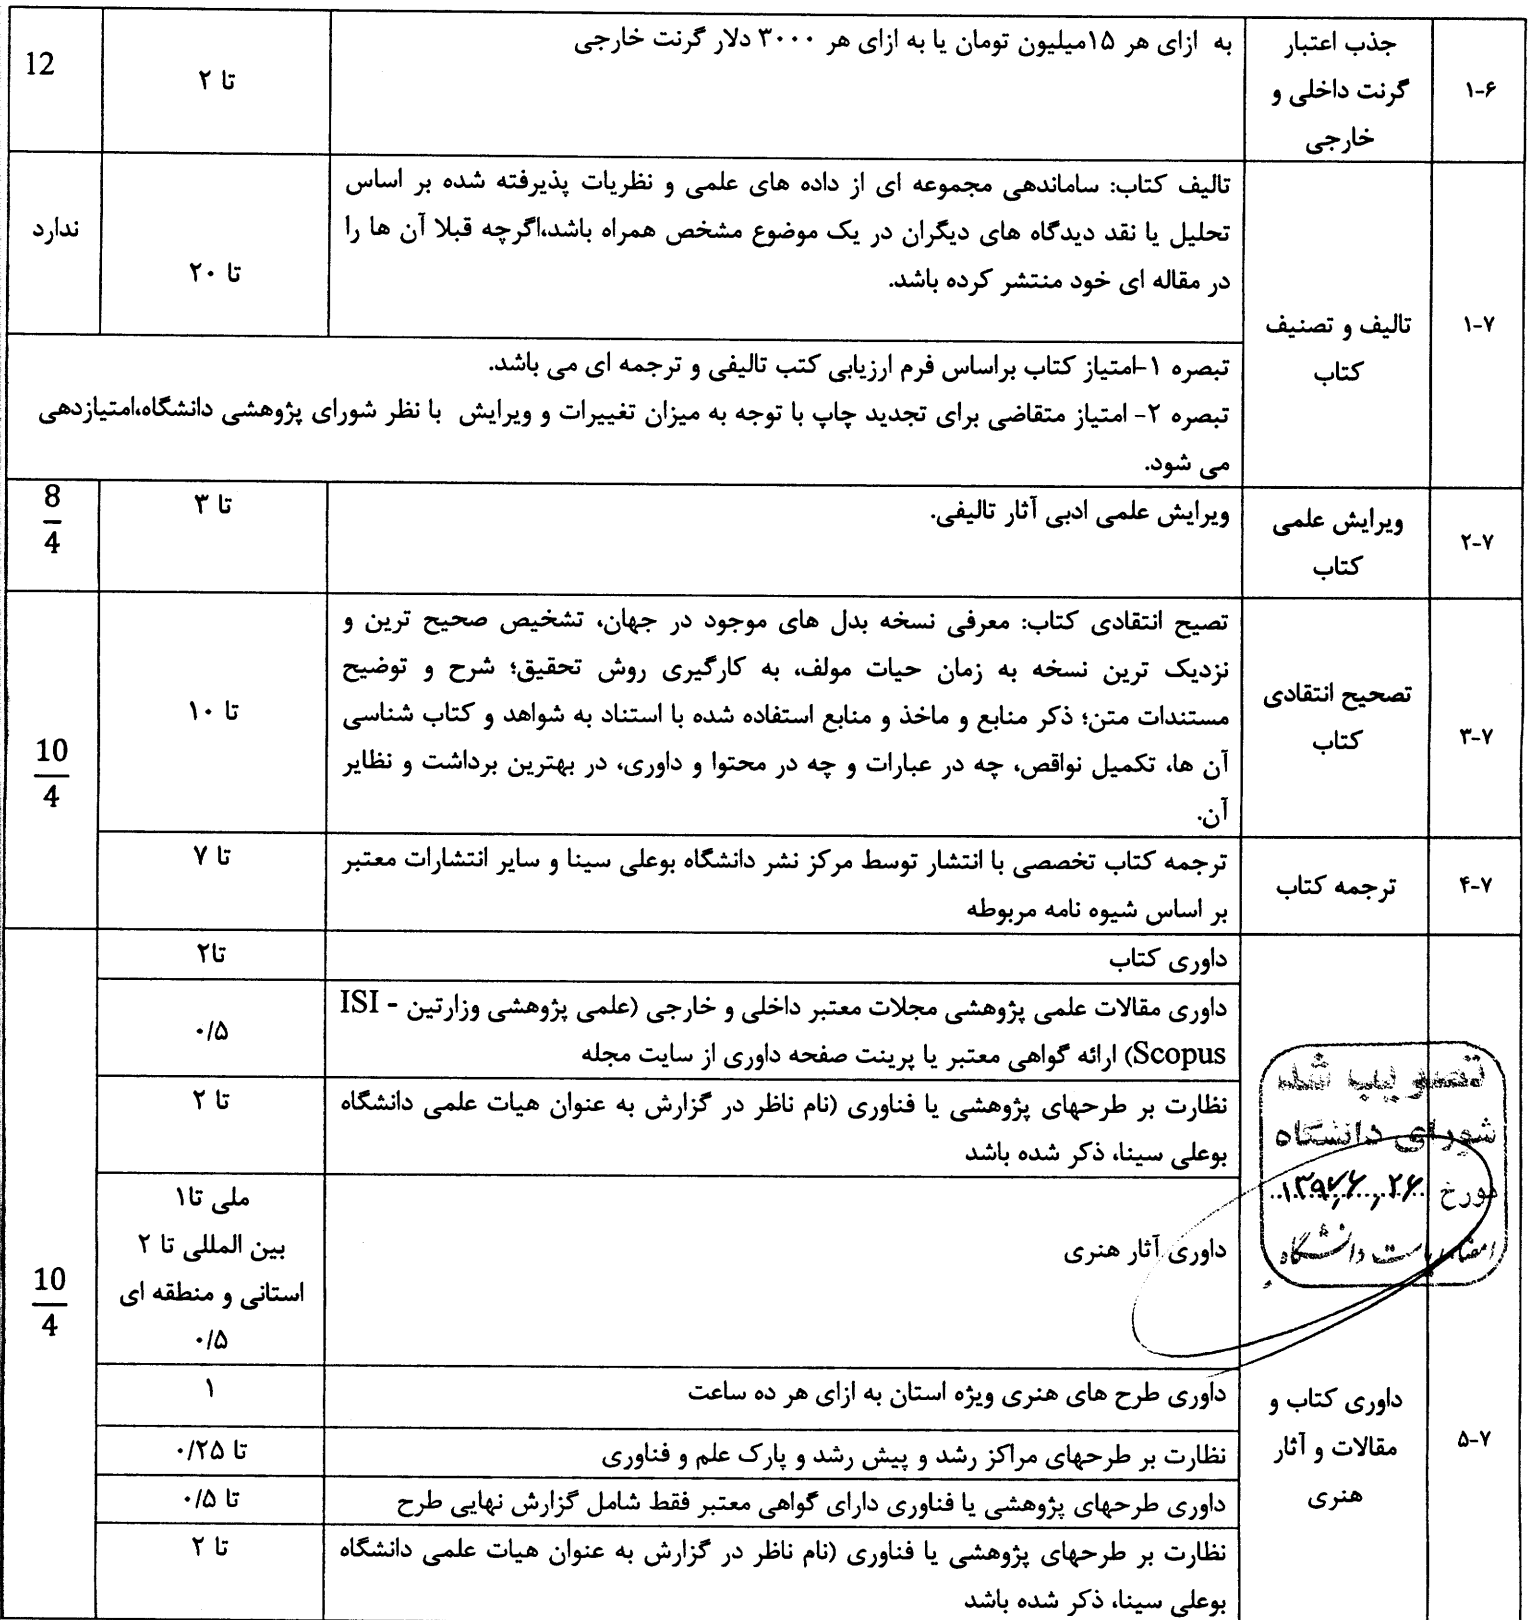 ۱-۶
جذب اعتبار
گرنت داخلی و
خارجی
به ازای هر ۱۵میلیون تومان یا به ازای هر ۳۰۰۰ دلار گرنت خارجی
تا ۲
12
۱-۷
تالیف و تصنیف
کتاب
تالیف کتاب: ساماندهی مجموعه ای از داده های علمی و نظریات پذیرفته شده بر اساس
تحلیل یا نقد دیدگاه های دیگران در یک موضوع مشخص همراه باشد،اگرچه قبلا آن ها را
در مقاله ای خود منتشر کرده باشد.
تا ۲۰
ندارد
تبصره ۱-امتیاز کتاب براساس فرم ارزیابی کتب تالیفی و ترجمه ای می باشد.
تبصره ۲- امتیاز متقاضی برای تجدید چاپ با توجه به میزان تغییرات و ویرایش با نظر شورای پژوهشی دانشگاه،امتیازدهی
می شود.
۲-۷
ویرایش علمی
کتاب
ویرایش علمی ادبی آثار تالیفی.
تا ۳
8
4
۳-۷
تصحیح انتقادی
کتاب
تصیح انتقادی کتاب: معرفی نسخه بدل های موجود در جهان، تشخیص صحیح ترین و
نزدیک ترین نسخه به زمان حیات مولف، به کارگیری روش تحقیق؛ شرح و توضیح
مستندات متن؛ ذکر منابع و ماخذ و منابع استفاده شده با استناد به شواهد و کتاب شناسی
آن ها، تکمیل نواقص، چه در عبارات و چه در محتوا و داوری، در بهترین برداشت و نظایر
آن.
تا ۱۰
10
4
۴-۷
ترجمه کتاب
ترجمه کتاب تخصصی با انتشار توسط مرکز نشر دانشگاه بوعلی سینا و سایر انتشارات معتبر
بر اساس شیوه نامه مربوطه
تا ۷
۵-۷
داوری کتاب و
مقالات و آثار
هنری
داوری کتاب
تا۲
داوری مقالات علمی پژوهشی مجلات معتبر داخلی و خارجی (علمی پژوهشی وزارتین - ISI
Scopus) ارائه گواهی معتبر یا پرینت صفحه داوری از سایت مجله
۰/۵
نظارت بر طرحهای پژوهشی یا فناوری (نام ناظر در گزارش به عنوان هیات علمی دانشگاه
بوعلی سینا، ذکر شده باشد
تا ۲
داوری آثار هنری
ملی تا۱
بین المللی تا ۲
استانی و منطقه ای
۰/۵
10
4
داوری طرح های هنری ویژه استان به ازای هر ده ساعت
۱
نظارت بر طرحهای مراکز رشد و پیش رشد و پارک علم و فناوری
تا ۰/۲۵
داوری طرحهای پژوهشی یا فناوری دارای گواهی معتبر فقط شامل گزارش نهایی طرح
تا ۰/۵
نظارت بر طرحهای پژوهشی یا فناوری (نام ناظر در گزارش به عنوان هیات علمی دانشگاه
بوعلی سینا، ذکر شده باشد
تا ۲
تصویب شد
شورای دانشگاه
مورخ
دانشگاه